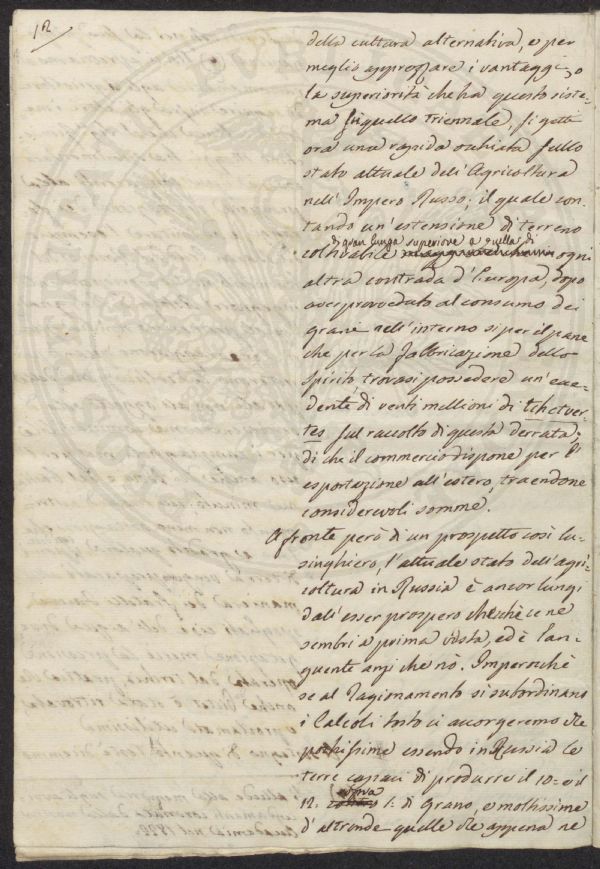 12
della cultura alternativa, e per
meglio apprezzare i vantaggi, o
la superiorità che ha questo siste-
ma su quello triennale, si getti
ora una rapida occhiata sullo
stato attuale dell'Agricoltura
nell'Impero Russo; il quale con-
tando un'estensione di terreno
di gran lunga superiore a quella di
coltivabile ogni
altra contrada d'Europa, dopo
aver provveduto al consumo dei
grani nell'interno si per il pane
che per la fabbricazione dello
spirito trovasi possedere un'ecce-
dente di venti millioni di tchetver-
tes sul raccolto di questa derrata;
di che il commercio dispone per l'
esportazione all'estero, traendone
considerevoli somme.
A fronte però di un prospetto così lu-
singhiero, l'attuale stato dell'agri-
coltura in Russia è ancor lungi
dall'esser prospero checchè ce ne
sembri a prima vista, ed è lan-
guente anzi che nò. Imperocchè
se al Ragionamento si subordinano
i Calcoli tosto ci accorgeremo che
pochissime essendo in Russia le
terre capaci di produrre il 10= e il
12: 1: di grano, e moltissime
d'altronde quelle che appena ne